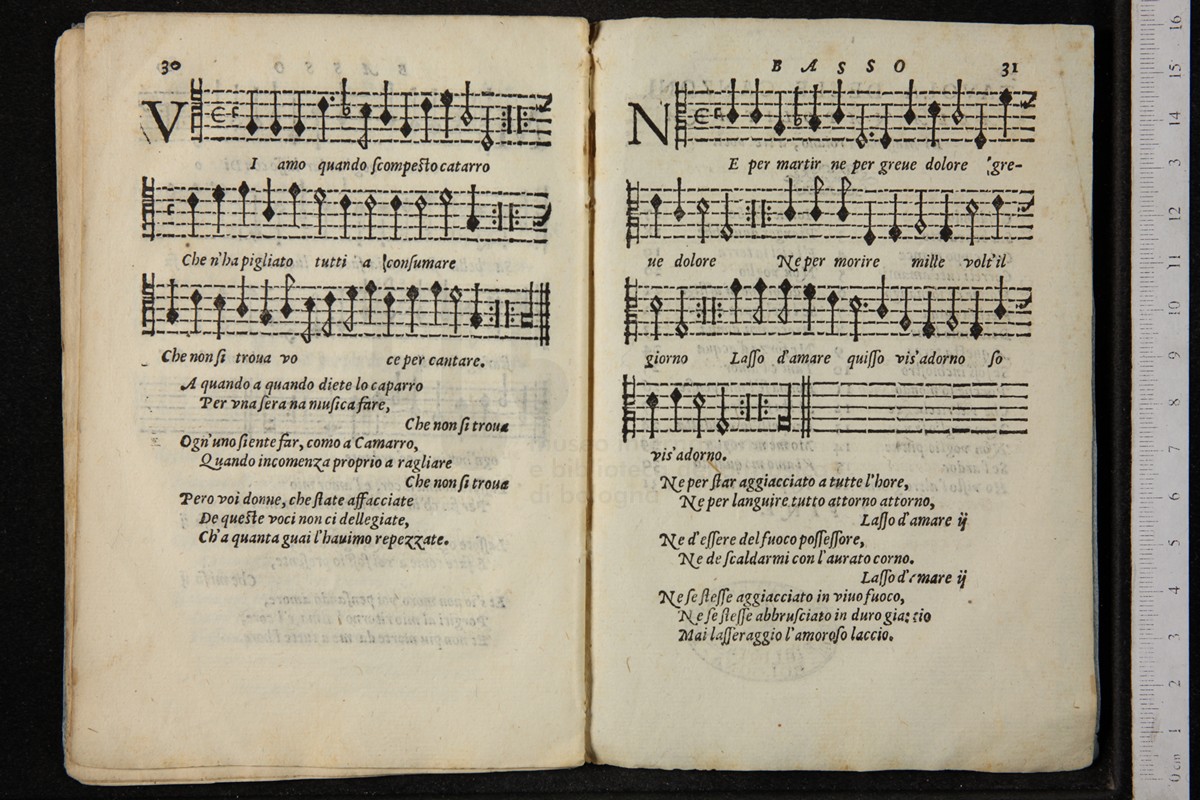 30
V
I amo quando ſcompeſto catarro
Che n'ha pigliato tutti a conſumare
Che non ſi troua vo ce per cantare.
A quando a quando diete lo caparro
Per vna ſera na muſica fare,
Che non ſi troua
Ogn'uno ſiente far, como a Camarro,
Quando incomenza proprio a ragliare
Che non ſi troua
Pero voi donne, che ſtate affacciate
De queſte voci non ci dellegiate,
Ch'a quanta guai l'hauimo repezzate.
BASSO 31
N
E per martir ne per greue dolore gre-
ue dolore Ne per morire mille volt'il
giorno Laſſo d'amare quiſſo vis'adorno ſo
vis'adorno.
Ne per ſtar aggiacciato a tutte l'hore,
Ne per languire tutto attorno attorno,
Laſſo d'amare ij
Ne d'eſſere del fuoco poſſeſſore,
Ne de ſcaldarmi con l'aurato corno.
Laſſo d'amare ij
Ne ſe ſteſſe aggiacciato in viuo fuoco,
Ne ſe ſteſſe abbruſciato in duro giaccio
Mai laſſeraggio l'amoroſo laccio.
museo
e biblioteca
di bologna
0 cm 1 2 3 4 5 6 7 8 9 10 11 12 13 14 15 16